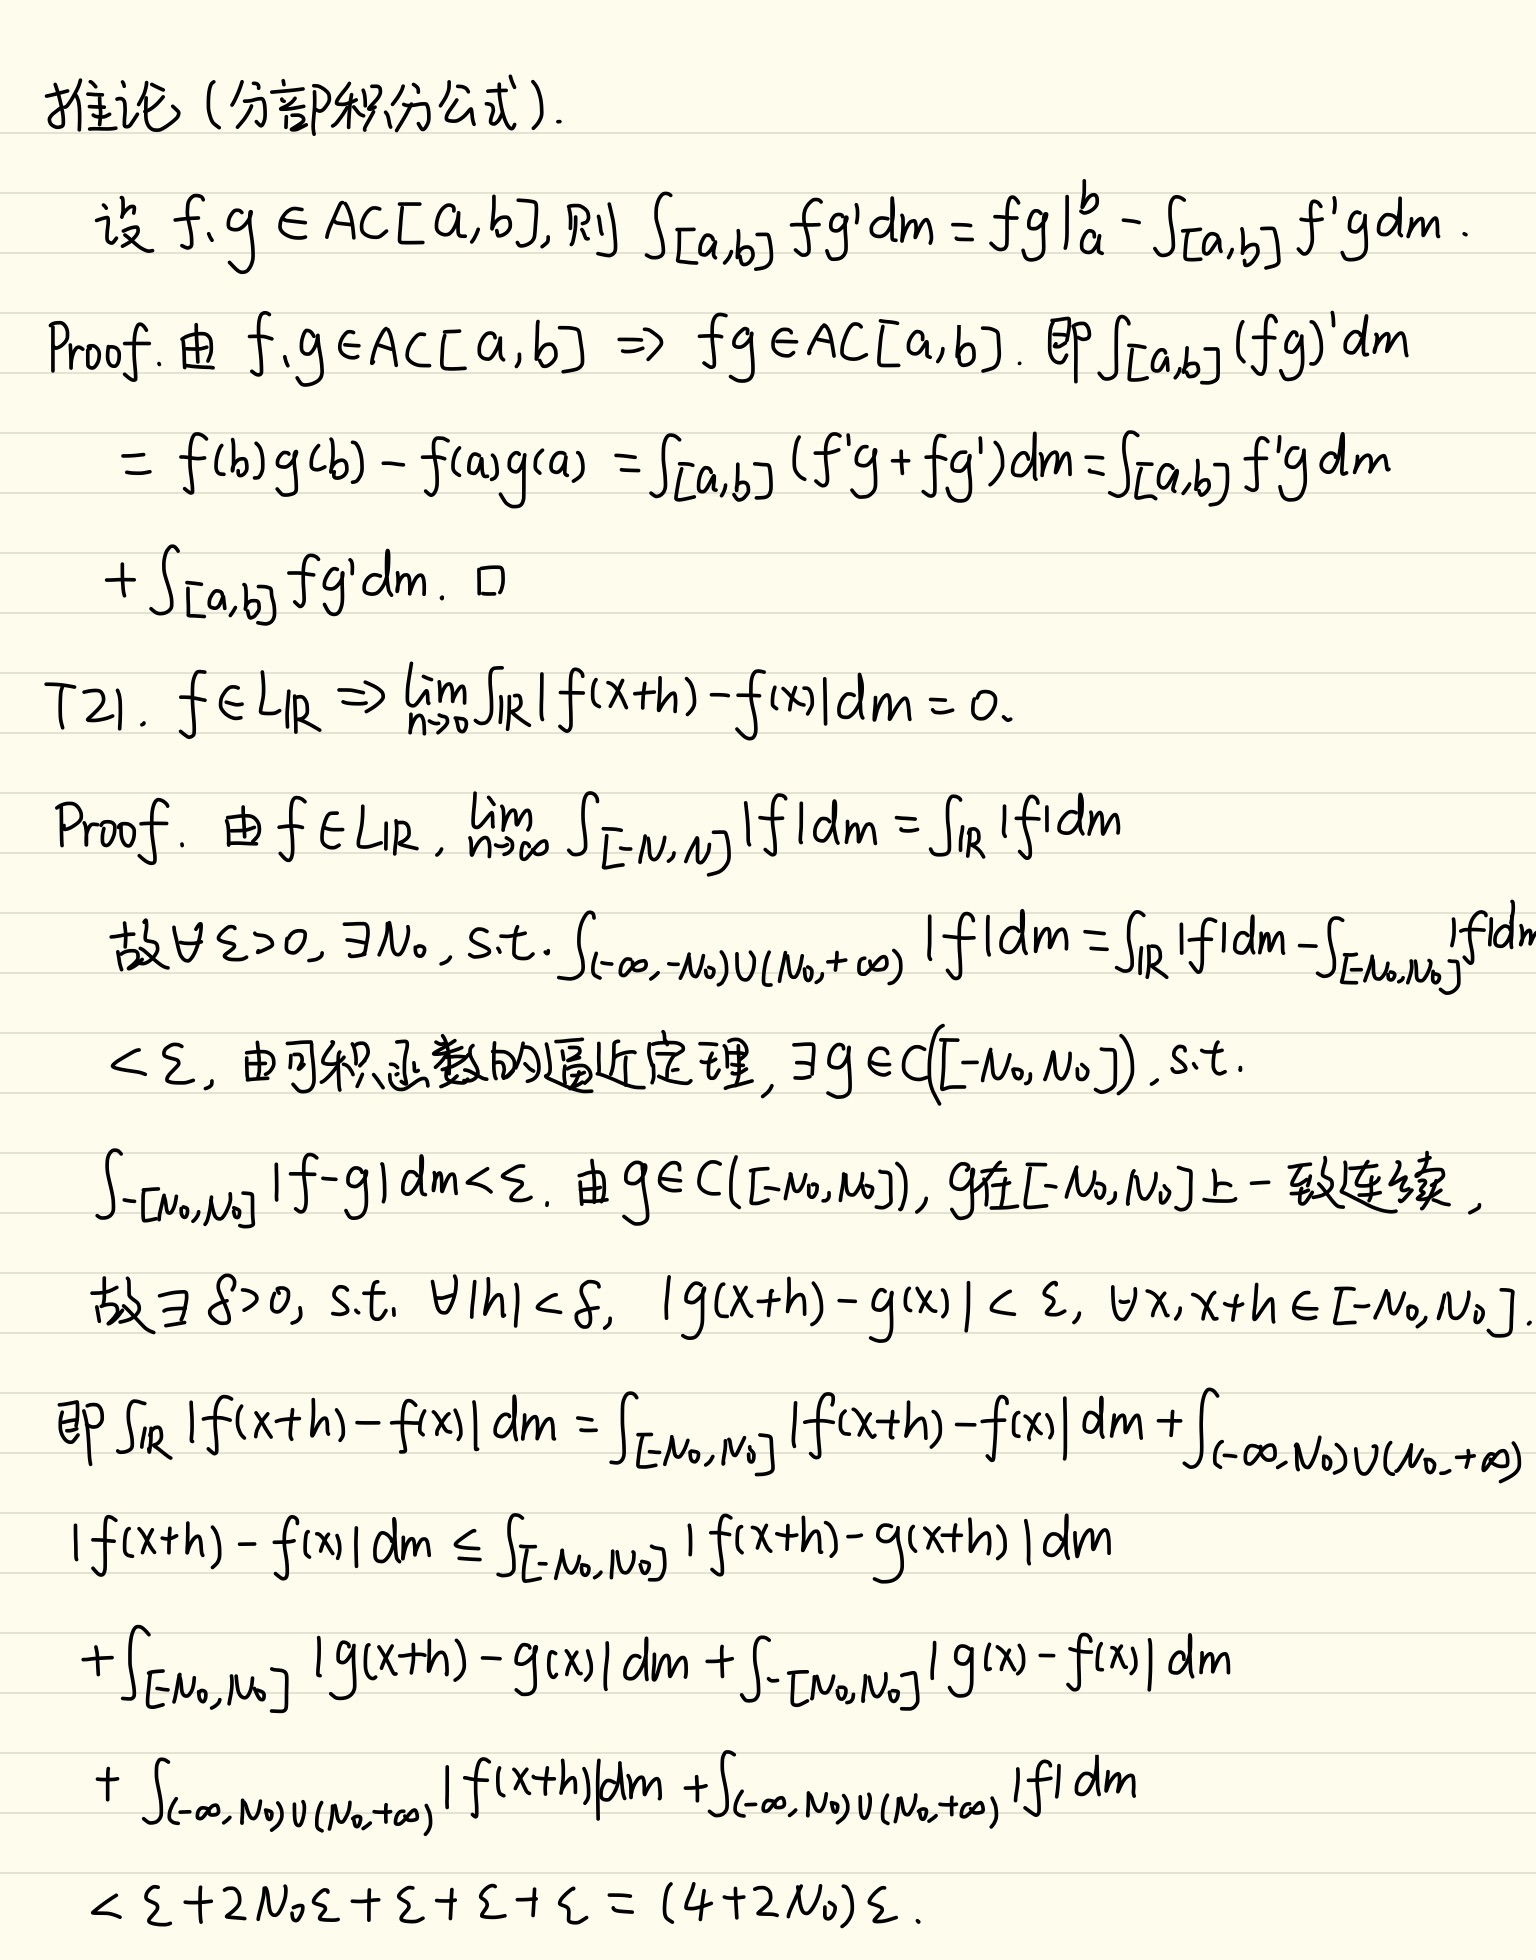 推论 (分部积分公式).
设 f、g ∈ AC[a,b], 则 ∫_{[a,b]} fg'dm = fg|_a^b - ∫_{[a,b]} f'g dm.
Proof. 由 f、g ∈ AC[a,b] ⇒ fg ∈ AC[a,b]. 即 ∫_{[a,b]} (fg)'dm
= f(b)g(b) - f(a)g(a) = ∫_{[a,b]} (f'g + fg')dm = ∫_{[a,b]} f'g dm
+ ∫_{[a,b]} fg'dm. □
T21. f ∈ L_ℝ ⇒ lim_{n→0} ∫_ℝ |f(x+h) - f(x)|dm = 0.
Proof. 由 f ∈ L_ℝ, lim_{n→∞} ∫_{[-N,N]} |f|dm = ∫_ℝ |f|dm
故 ∀ε>0, ∃N₀, s.t. ∫_{(-∞,-N₀)∪(N₀,+∞)} |f|dm = ∫_ℝ |f|dm - ∫_{[-N₀,N₀]} |f|dm
< ε, 由可积函数的逼近定理, ∃g ∈ C([-N₀,N₀]), s.t.
∫_{-[N₀,N₀]} |f-g|dm < ε. 由 g ∈ C([-N₀,N₀]), g在[-N₀,N₀]上一致连续,
故 ∃δ>0, s.t. ∀|h|<δ, |g(x+h) - g(x)| < ε, ∀x, x+h ∈ [-N₀,N₀].
即 ∫_ℝ |f(x+h) - f(x)|dm = ∫_{[-N₀,N₀]} |f(x+h) - f(x)|dm + ∫_{(-∞,N₀)∪(N₀,+∞)}
|f(x+h) - f(x)|dm ≤ ∫_{[-N₀,N₀]} |f(x+h) - g(x+h)|dm
+ ∫_{[-N₀,N₀]} |g(x+h) - g(x)|dm + ∫_{-[N₀,N₀]} |g(x) - f(x)|dm
+ ∫_{(-∞,N₀)∪(N₀,+∞)} |f(x+h)|dm + ∫_{(-∞,N₀)∪(N₀,+∞)} |f|dm
< ε + 2N₀ε + ε + ε + ε = (4+2N₀)ε.